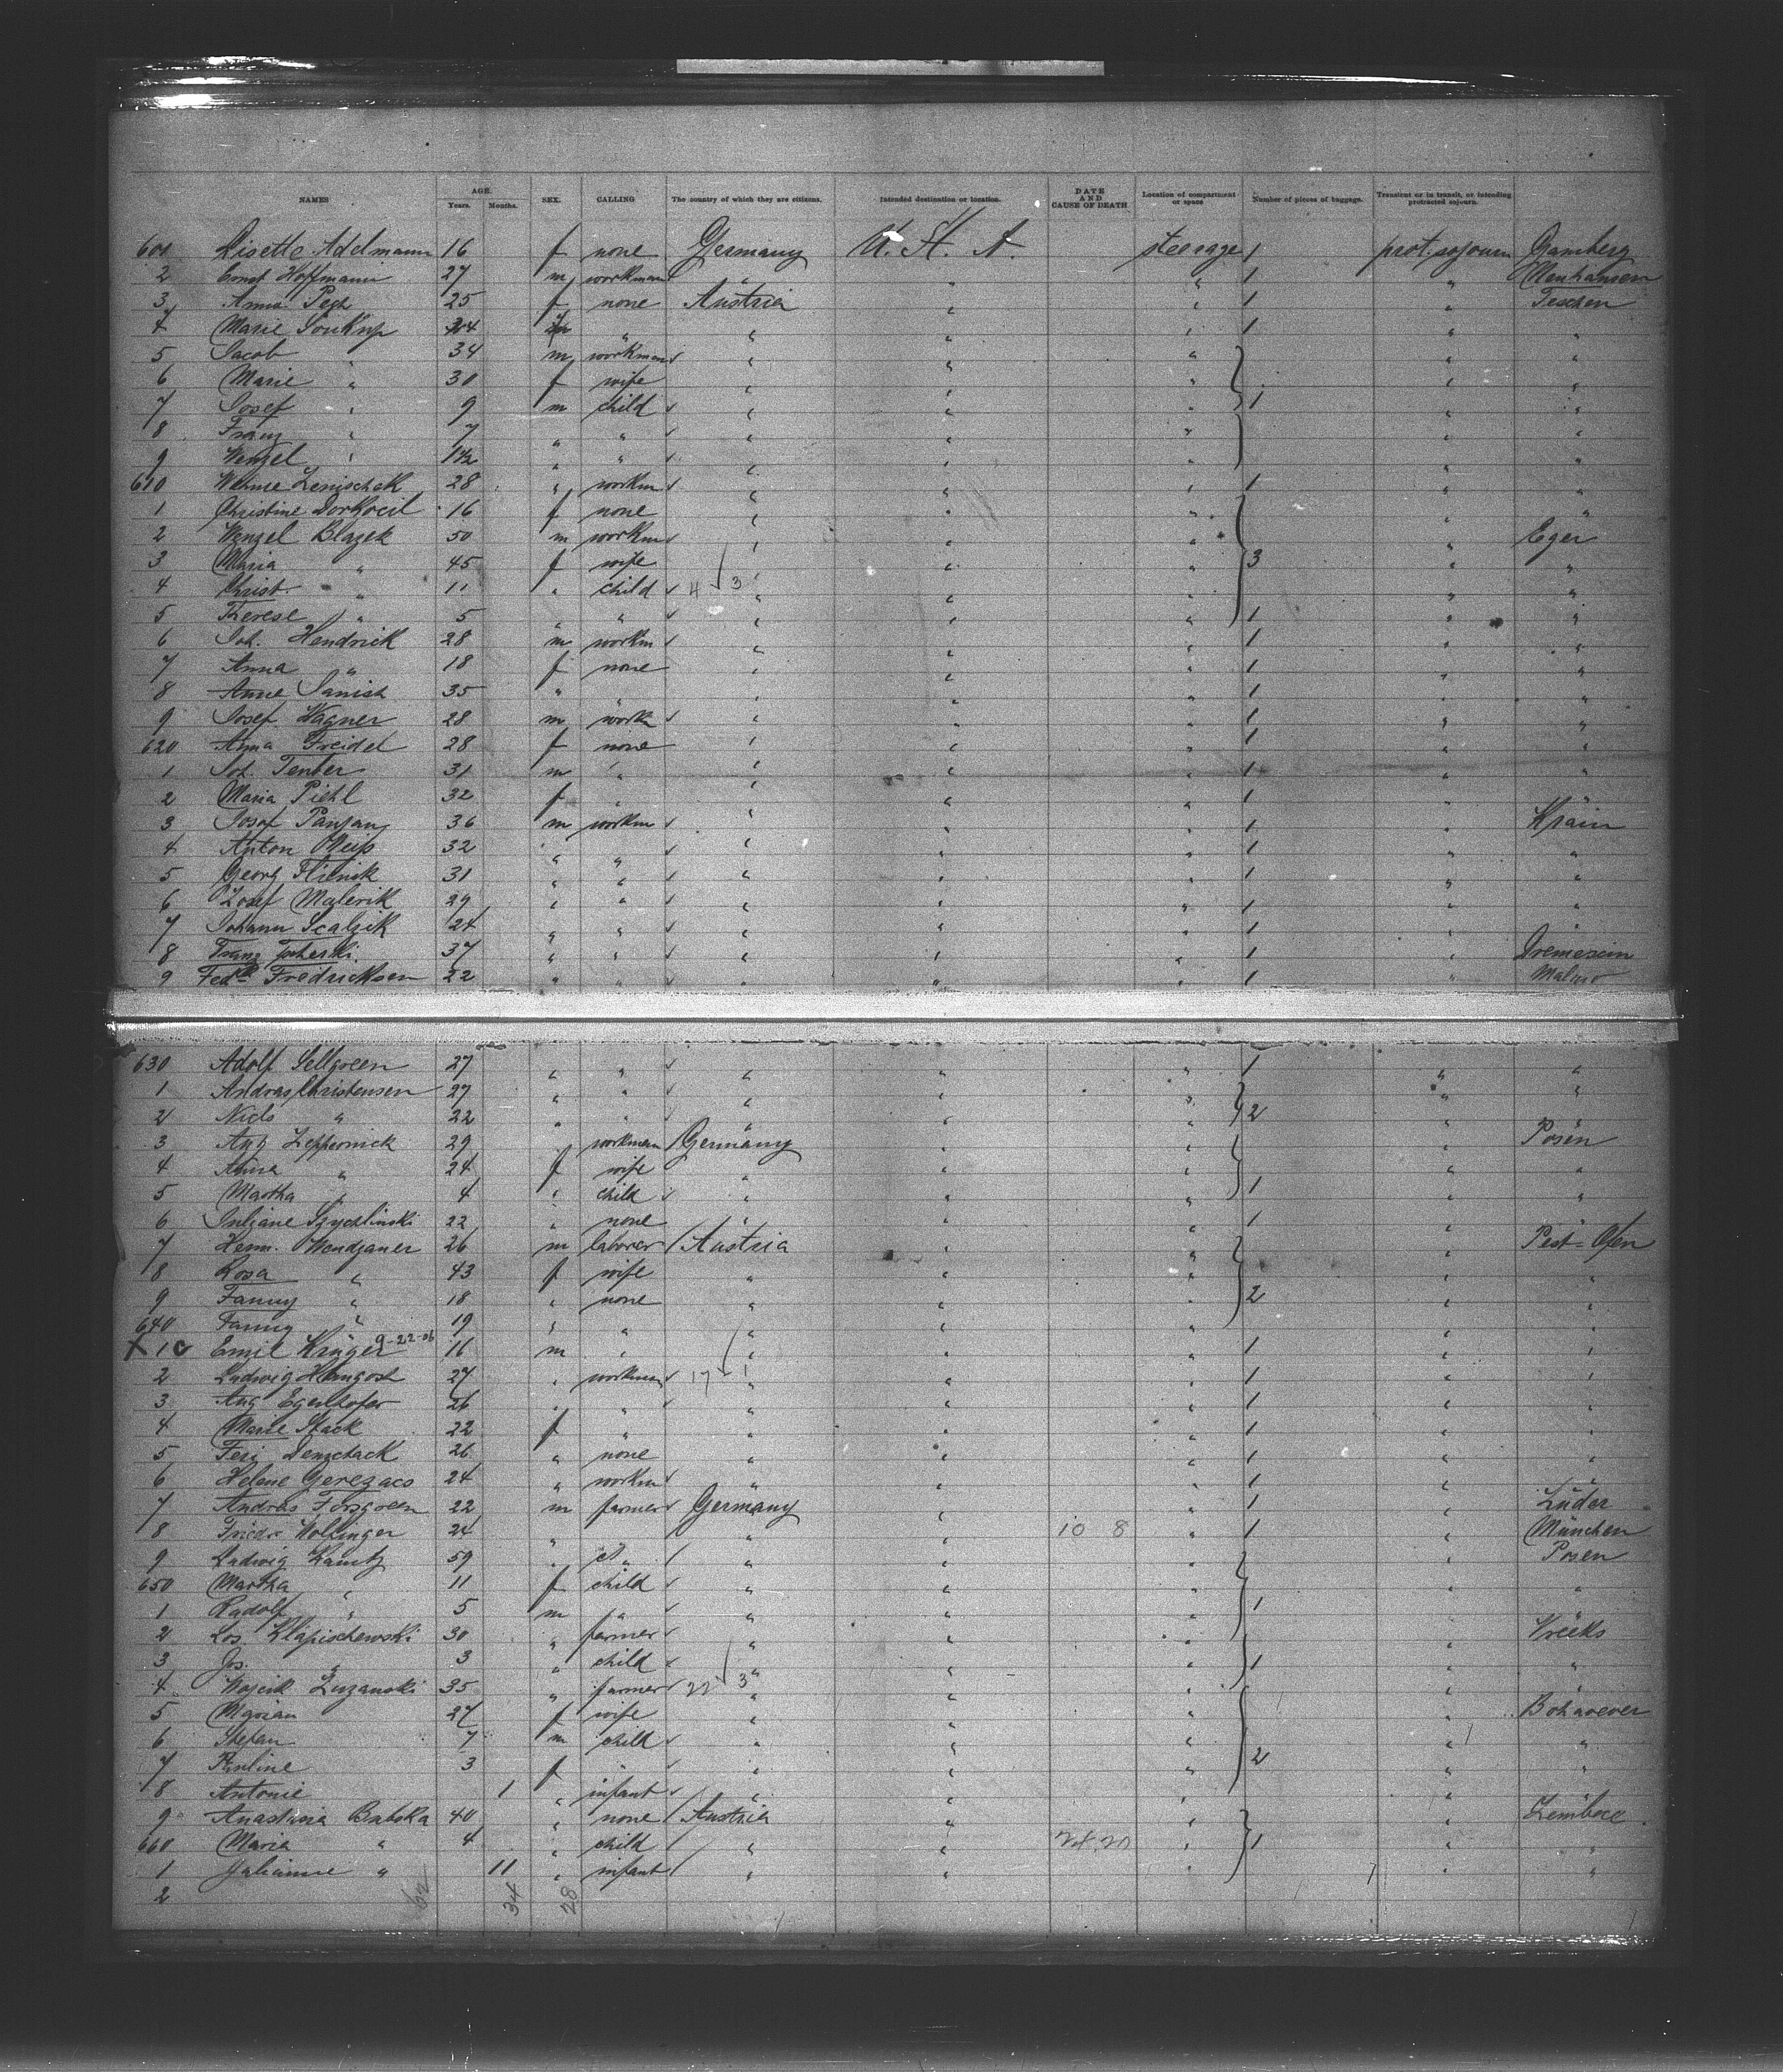 NAMES AGE. Years. Months. SEX. CALLING The country of which they are citizens. Intended destination or location. DATE AND CAUSE OF DEATH Location of compartment or space Number of pieces of baggage. Transient or in transit, or intending protracted sojourn.
601 Lisette Adelmann 16 f none Germany U. S. A. steerage 1 prot. sojourn Gamberg
2 Ernst Hoffmann 27 m workman " " " 1 "
3 Anna 25 f none Austria " " 1 " Teschen
4 Marie Soukup " " " " 1 " "
5 Jacob " 34 m workman " " " " "
6 Marie " 30 f wife " " " " "
7 Josef " 9 m child " " " 1 " "
8 Franz " 7 " " " " " " "
9 Wenzel " 1 1/2 " " " " " " "
610 28 " workm " " " 1 " "
1 Christine 16 f none " " " " "
2 Wenzel Blazek 50 m workm " " " " Eger
3 Maria " 45 f wife " " " 3 " "
4 Christ. " 11 " child 4 3 " " " " "
5 Therese " 5 " " " " " 1 " "
6 Joh. Hendrick 28 m workm " " " 1 " "
7 Anna " 18 f none " " " 1 " "
8 Anna Janisch 35 " " " " " 1 " "
9 Josef Wagner 28 m workm " " " 1 " "
620 Anna Freidel 28 f none " " " 1 " "
1 Joh. Tenber 31 m " " " " 1 " "
2 Maria Piehl 32 f " " " " 1 " "
3 Josef Panjan 36 m workm " " " 1 " Krain
4 Anton 32 " " " " " 1 " "
5 Georg 31 " " " " " 1 " "
6 Josef Malerik 29 " " " " " 1 " "
7 Johann Scalzik 24 " " " " " 1 " "
8 Franz 37 " " " " " 1 "
9 Fredricksen 22 " " " " " 1 " Malmo
630 Adolf Sellgreen 27 " " " " " 1 " "
1 Andras Christensen 27 " " " " " " "
2 Niels " 22 " " " " " 2 " "
3 Aug Leppernick 29 " workman Germany " " " Posen
4 Anna " 24 f wife " " " " "
5 Martha " 4 " child " " " 1 " "
6 Juliane Szychlinski 22 " none " " " 1 " "
7 Herm. Wendzaner 26 m laborer Austria " " " Pest-Ofen
8 Rosa " 43 f wife " " " " "
9 Fanny " 18 " none " " " 2 " "
640 Fanny " 19 " " " " " " "
X 1 c Emil Krüger 9-22-06 16 m " " " " 1 " "
2 Ludwig 27 " workman 17 1 " " " 1 " "
3 Aug Egerhofer 26 " " " " " 1 " "
4 Marie Stack 22 f " " " " 1 " "
5 Feri Denschack 26 " none " " " 1 " "
6 Helene Gerezacs 24 " workm " " " 1 " "
7 Andras Forsgreen 22 m farmer Germany " " 1 " Lüder
8 Friedr Wollinger 24 " " " " 10 8 " 1 " München
9 Ludwig Kamtz 59 " " " " " " Posen
650 Martha " 11 f child " " " " "
1 Rudolf " 5 m " " " " 1 " "
2 Jos. Klapischewski 30 " farmer " " " "
3 Jos. " 3 " child " " " 1 " "
4 Luzanski 35 " farmer 22 3 " " " " "
5 Marian 27 f wife " " " "
6 Stefan 7 m child " " " " "
7 Pauline 3 f " " " " 2 " "
8 Antonie 1 " infant " " " " "
9 Anastasia Babska 40 " none Austria " " "
660 Maria " 4 " child " " 24,20 " 1 " "
1 Julianne " 11 " infant " " " " "
2
62 34 28